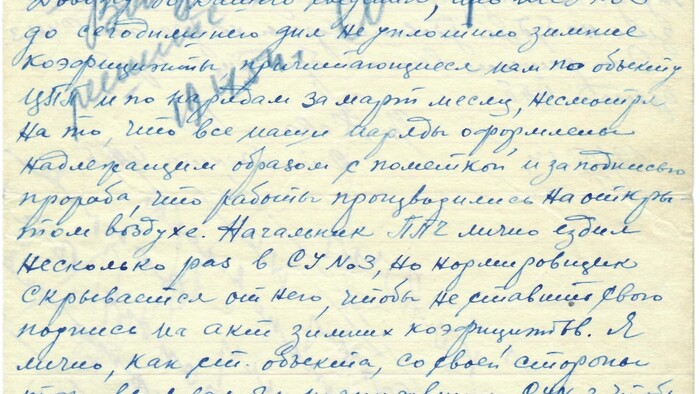 до сегодняшнего дня не уплотило зимние
коэфициэнты причитающиеся нам по объекту
ЦПП и по нарядам за март месяц, несмотря
на то, что все наши наряды оформлены
надлежащим образом с пометкой и за подписью
прораба, что работы производились на откры-
том воздухе. Начальник ППЧ лично ездил
несколько раз в СУ №3, но нормировщик
скрывается от него, чтобы не ставить свою
подпись на акт зимних коэфициэнтов. Я
лично, как ст. объекта, со своей стороны